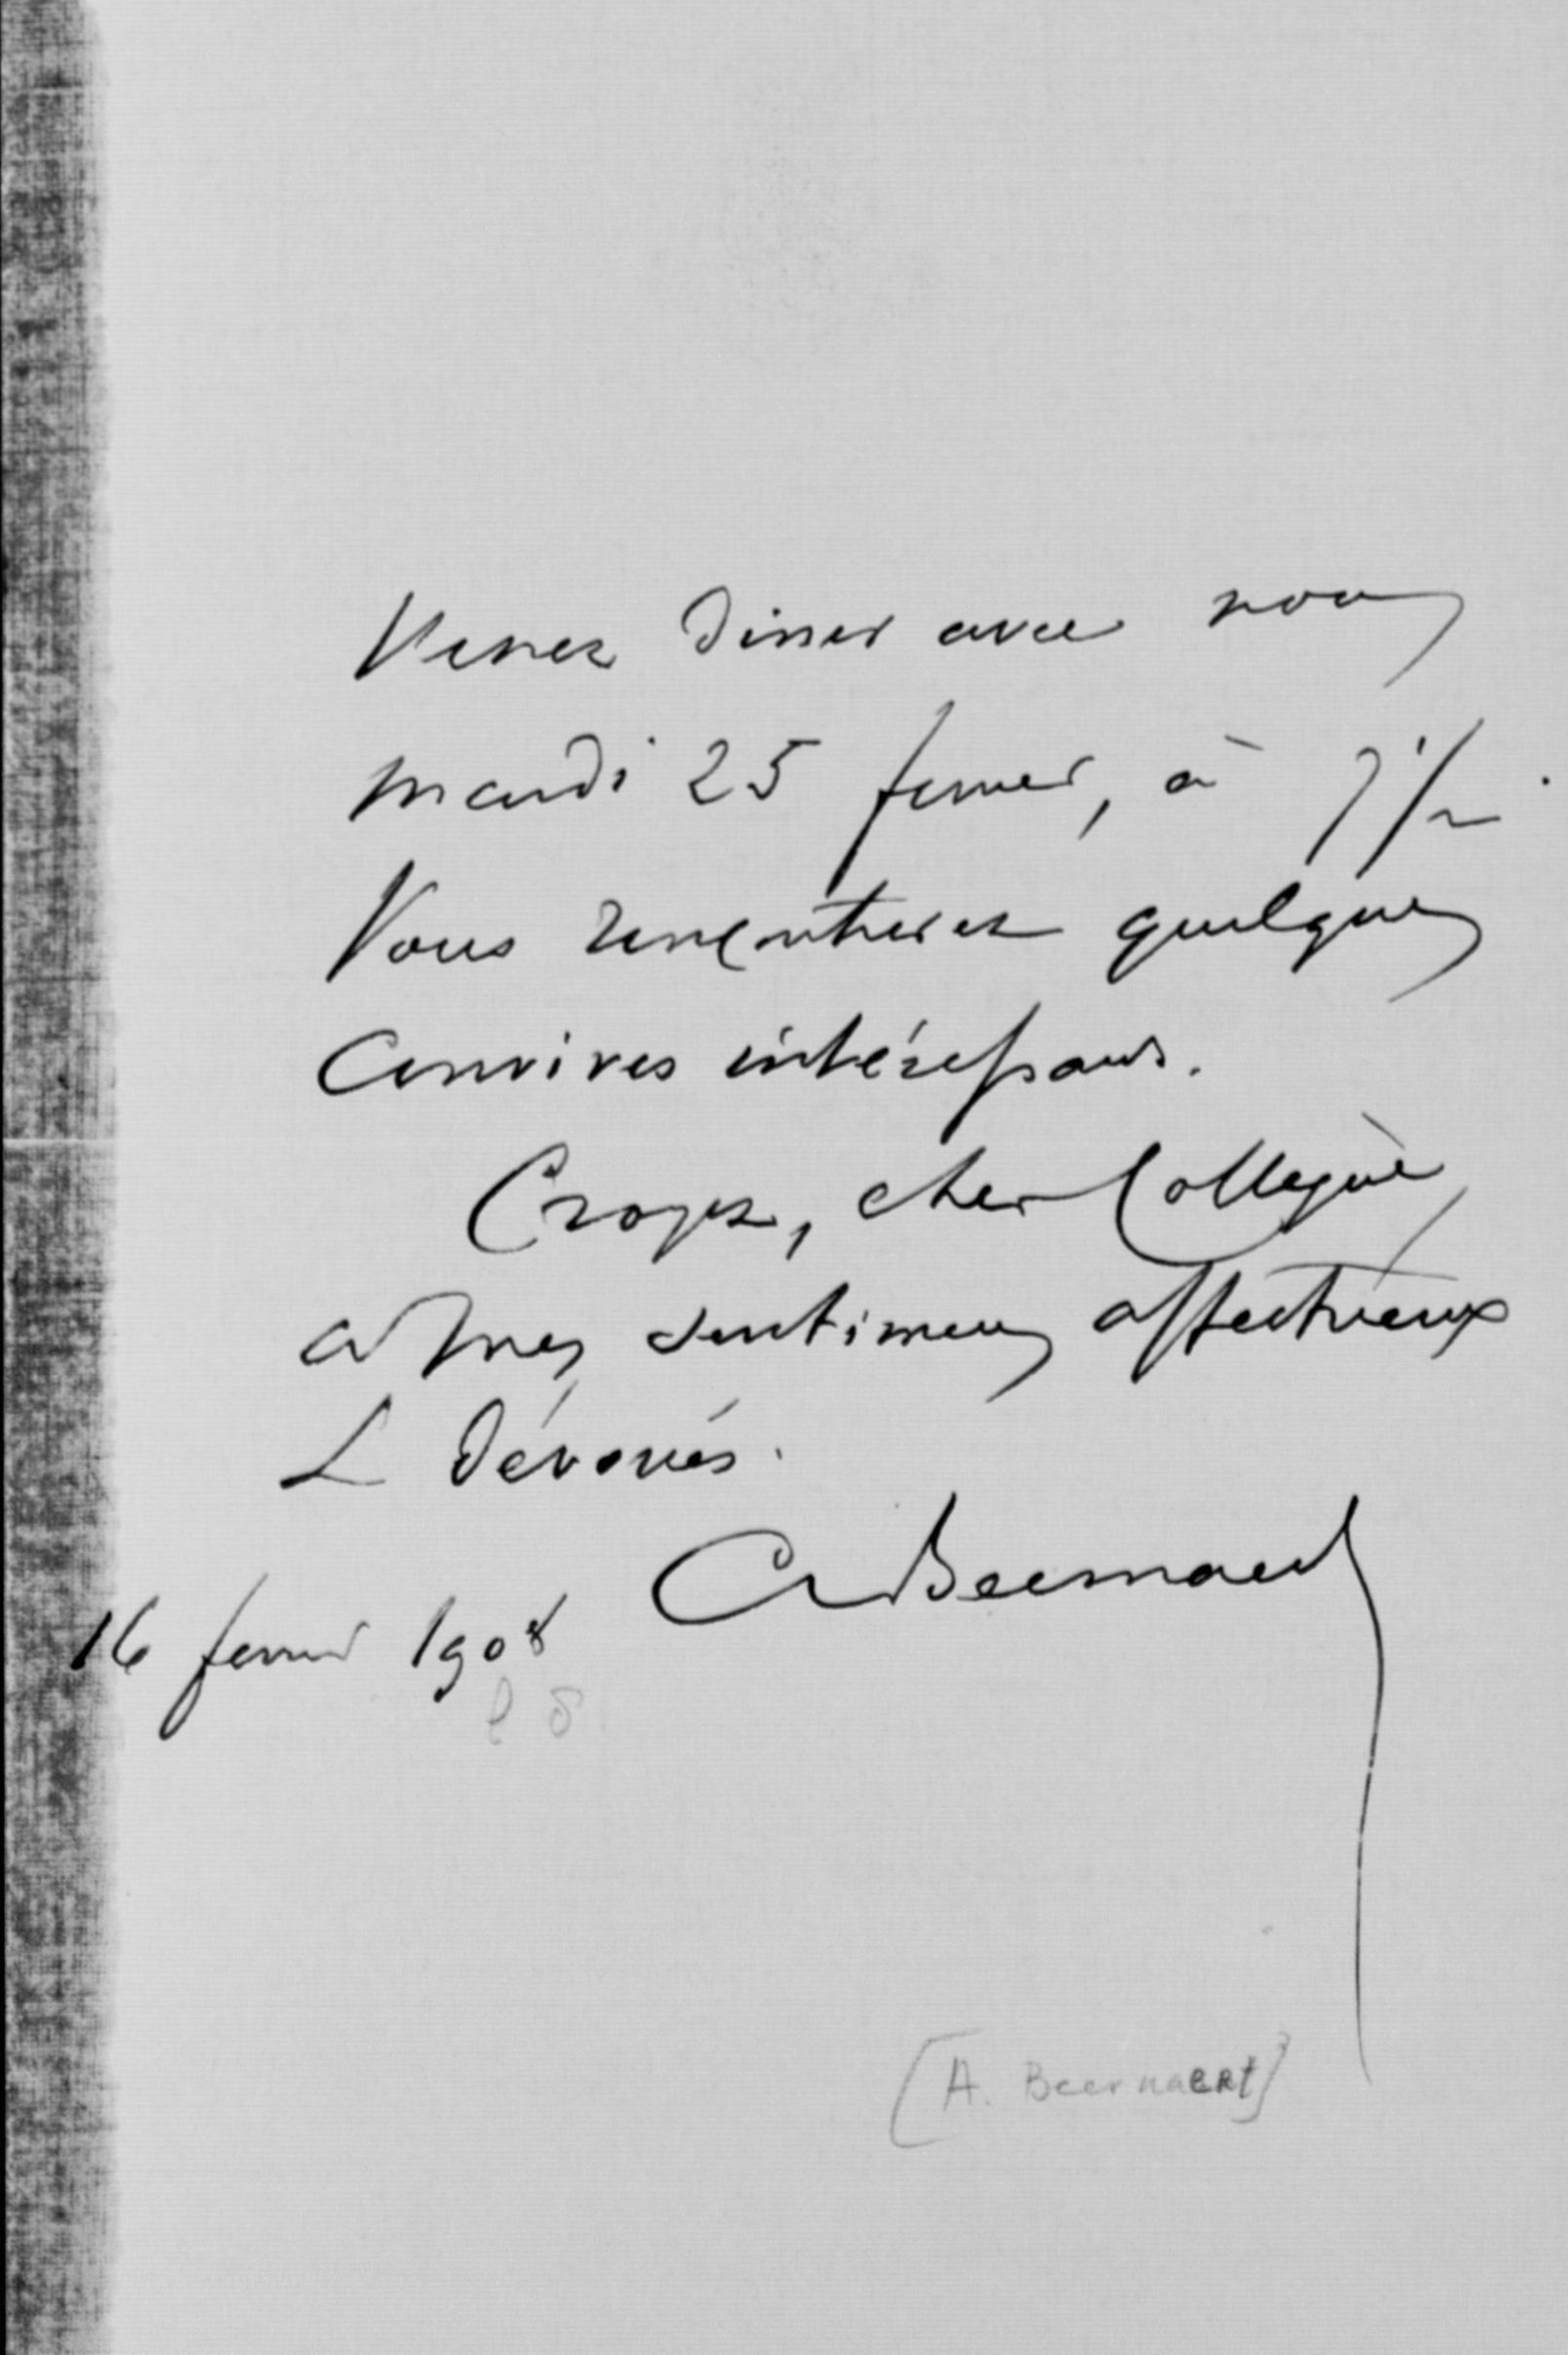 Venez diner avec nous
mardi 25 fevrier, à 7 1/2.
Vous rencontrerez quelques
convives intéressans.
Croyez, cher Collègue,
à mes sentimens affectueux
& dévoués.
A Beernaert
16 fevrier 1908
08
[A. Beernaert]